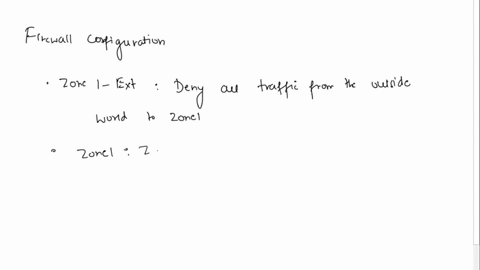 Firewall Configuration
• Zone 1 - Ext : Deny all traffic from the outside
world to Zone1
• Zone1 : Z